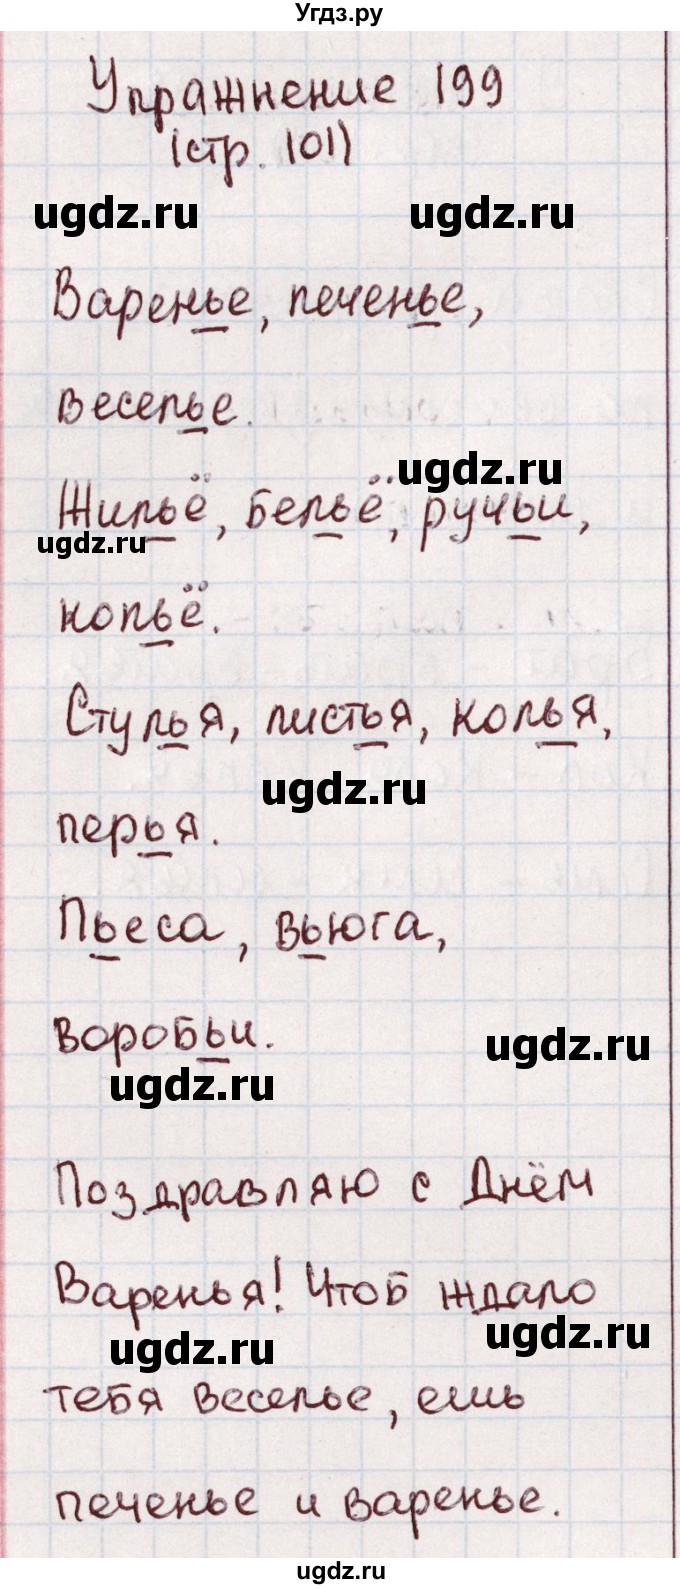 Угдз.ру
Упражнение 199
(стр. 101)
ugdz.ru ugdz.ru
Варенье, печенье,
веселье.
ugdz.ru
Жильё, бельё, ручьи,
ugdz.ru
копьё.
Стулья, листья, колья,
ugdz.ru
перья.
Пьеса, вьюга,
воробьи.
ugdz.ru
ugdz.ru
Поздравляю с Днём
Варенья! Чтоб ждало
ugdz.ru
ugdz.ru
тебя веселье, ешь
печенье и варенье.
ugdz.ru